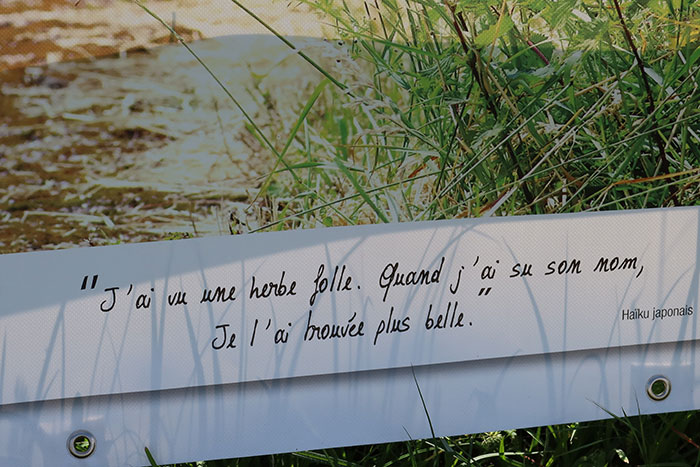 "J'ai vu une herbe folle. Quand j'ai su son nom,
Je l'ai trouvée plus belle."
Haïku japonais